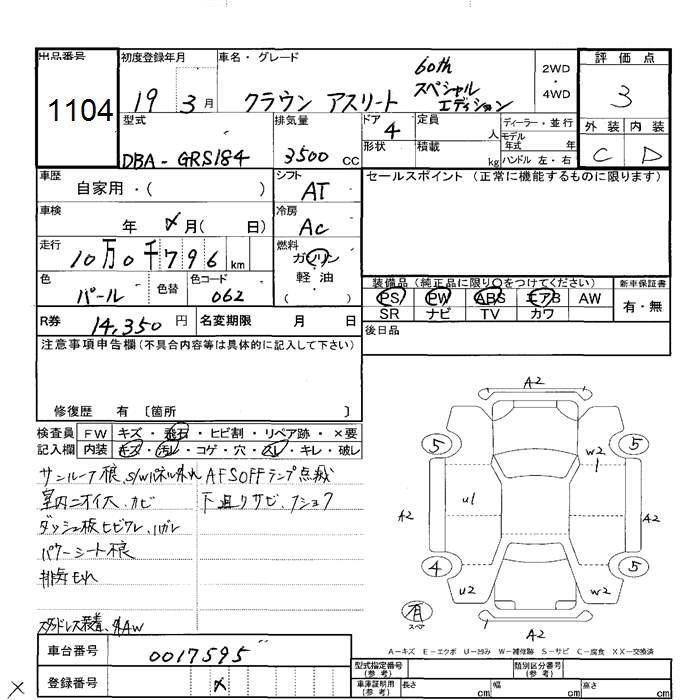 出品番号 1104
初度登録年月 19 3月
車名・グレード クラウン アスリート 60th スペシャル エディション
2WD・4WD
評価点 3
外装 C 内装 D
型式 DBA-GRS184
排気量 3500 cc
ドア 4
定員 人
ディーラー・並行
モデル年式 年
形状
積載 kg
ハンドル 左・右
車歴 自家用・( )
シフト AT
セールスポイント(正常に機能するものに限ります)
車検 年 メ月( 日)
冷房 AC
走行 10万0千796 km
燃料 ガソリン 軽油 ( )
色 パール 色替 色コード 062
装備品(純正品に限り○をつけてください)
PS PW ABS エアB AW
SR ナビ TV カワ
新車保証書 有・無
R券 14,350円 名変期限 月 日
後日品
注意事項申告欄(不具合内容等は具体的に記入して下さい)
修復歴 有 〔箇所 〕
検査員記入欄
FW キズ・飛石・ヒビ割・リペア跡・×要
内装 キズ・汚レ・コゲ・穴・スレ・キレ・破レ
AFS OFFランプ点滅
室内ニオイ大、カビ
下廻りサビ、フショク
ダッシュ板ヒビワレ、ハガレ
排気もれ
スタッドレス装着、社AW
A2
5 5
W2 1
A2 U1 A2
4 5
U2 W2
有 スペア
A2
A-キズ E-エクボ U-凹み W-補修跡 S-サビ C-腐食 XX-交換済
車台番号 0017595
登録番号 メ
型式指定番号(参考)
類別区分番号(参考)
車庫証明用(参考) 長さ cm 幅 cm 高さ cm